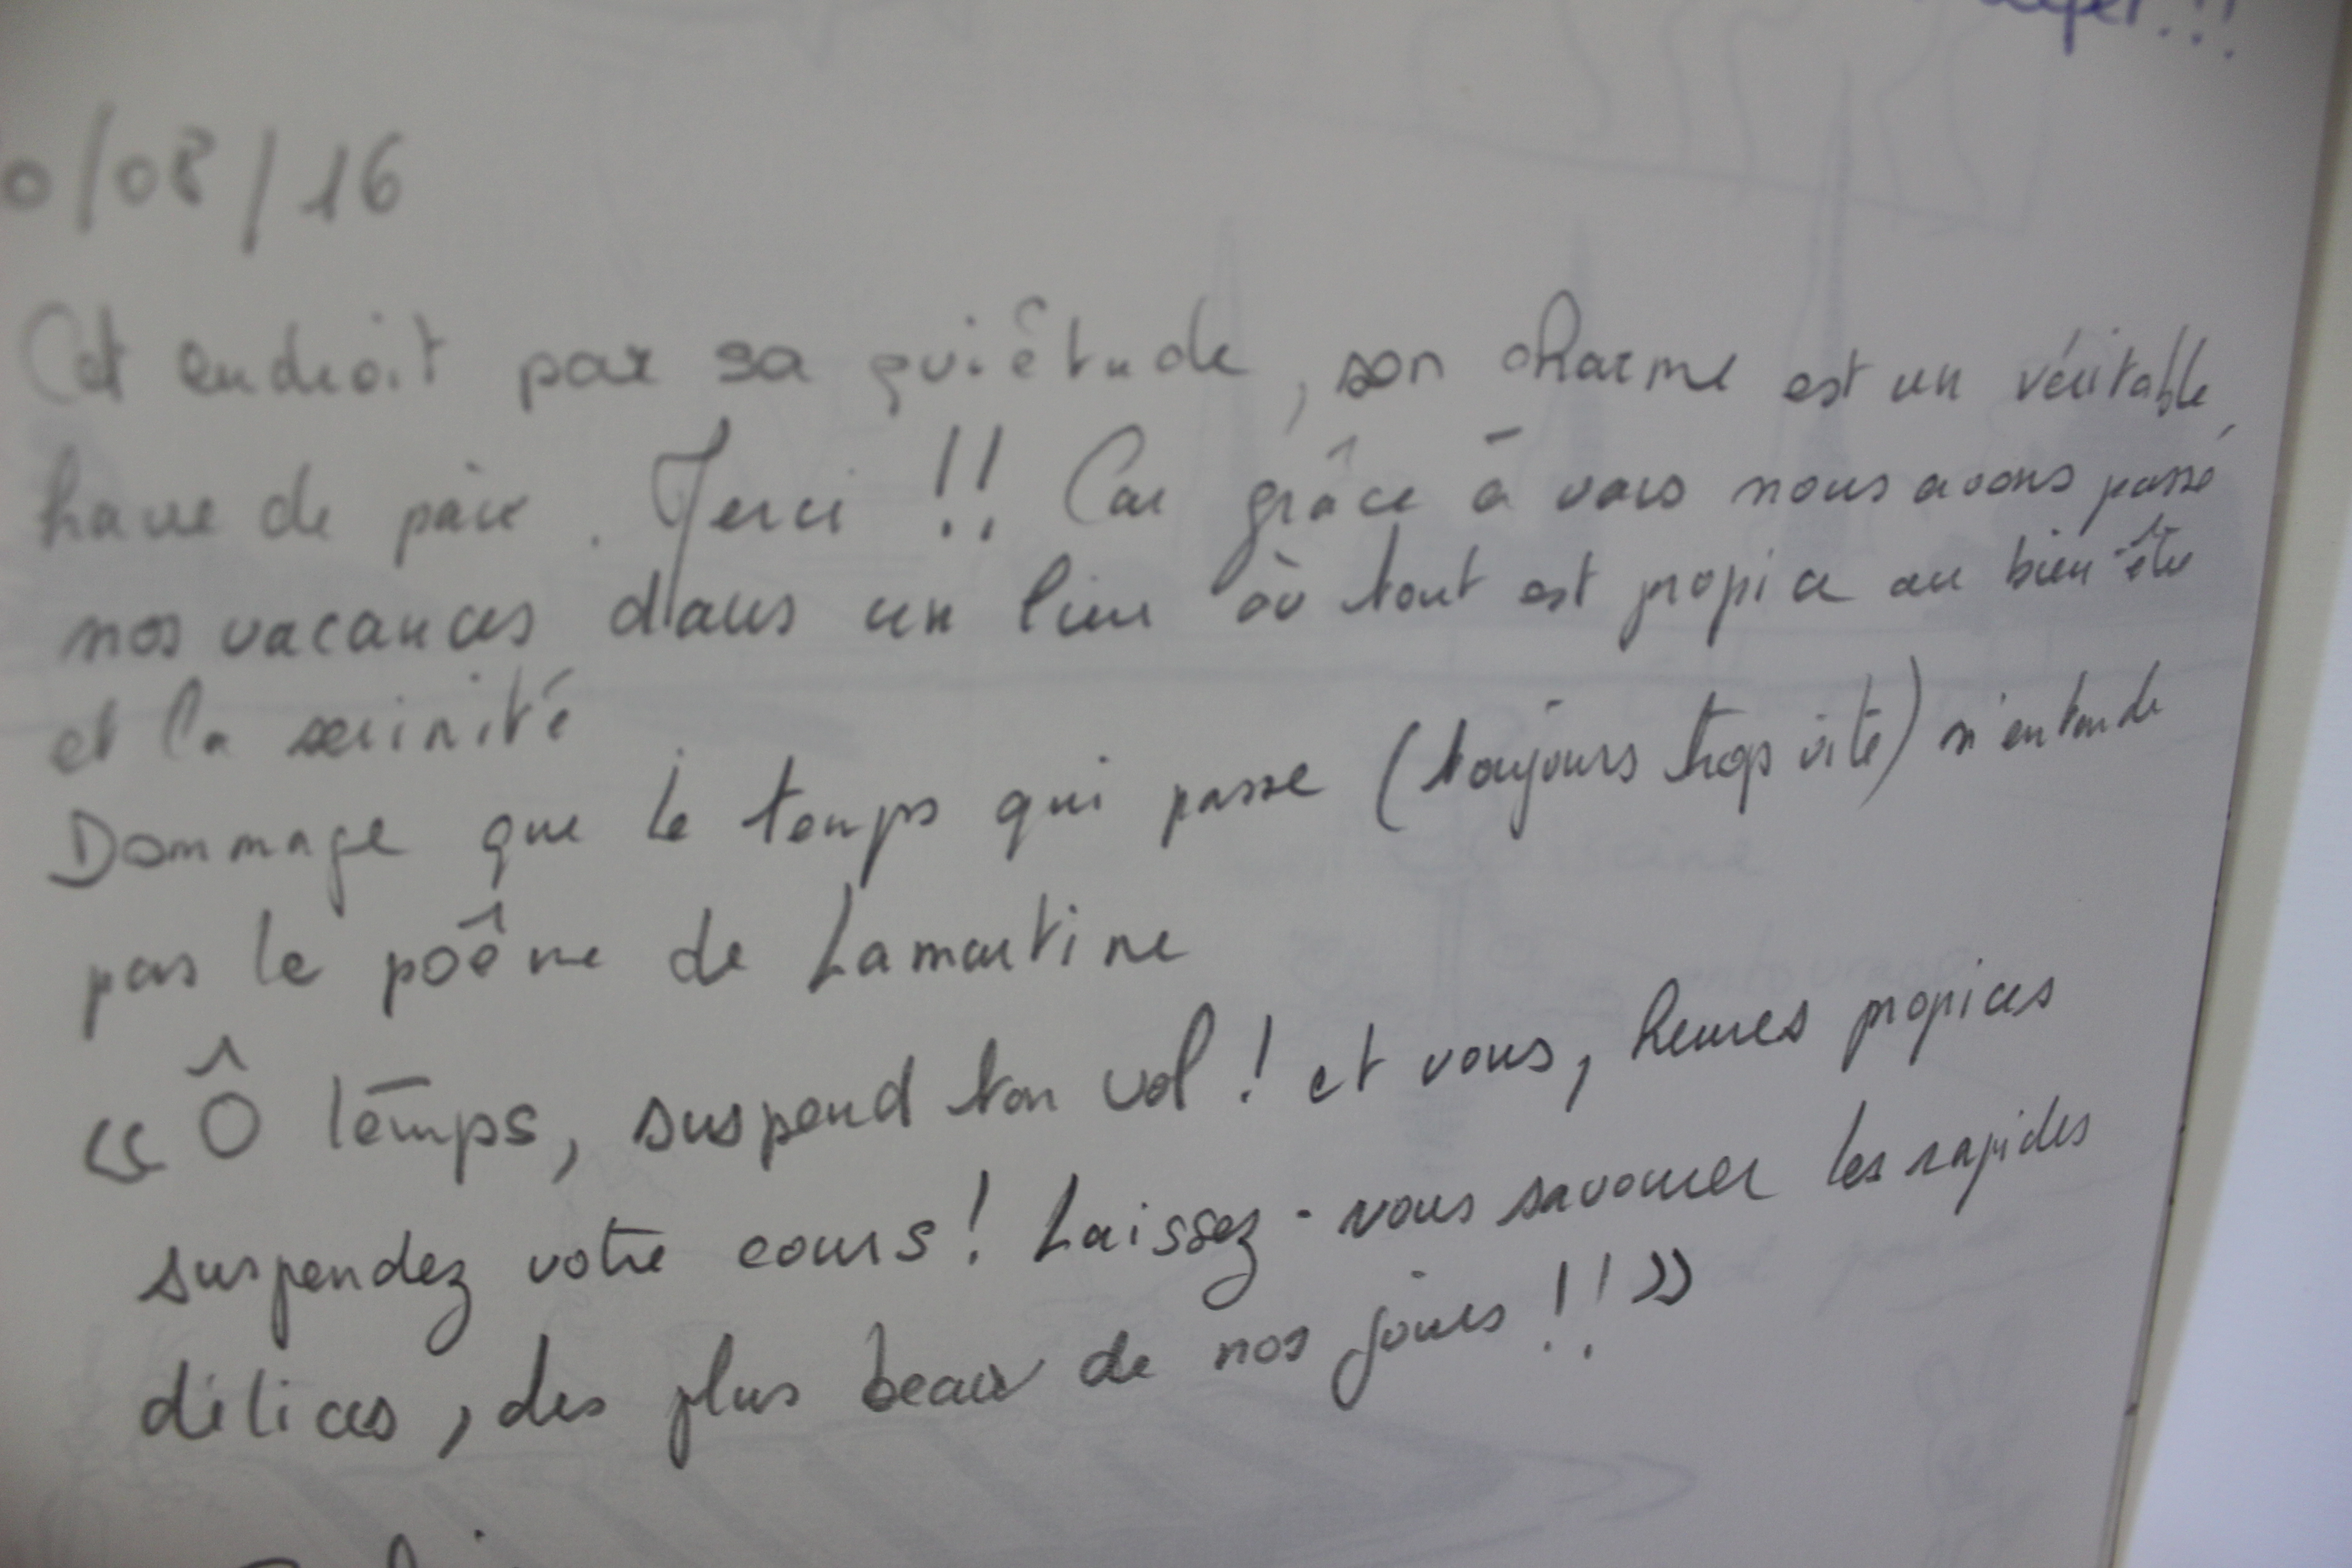 0/08/16
Cet endroit par sa quiêtude, son charme est un véritable
havre de paix. Merci !! Car grâce à vous nous avons passé
nos vacances dans un lieu où tout est propice au bien être
et la sérinité
Dommage que le temps qui passe (toujours trop vite) n'entende
pas le poême de Lamartine
« Ô temps, suspend ton vol ! et vous, heures propices
suspendez votre cours ! Laissez-nous savourer les rapides
délices, des plus beaux de nos jours !! »